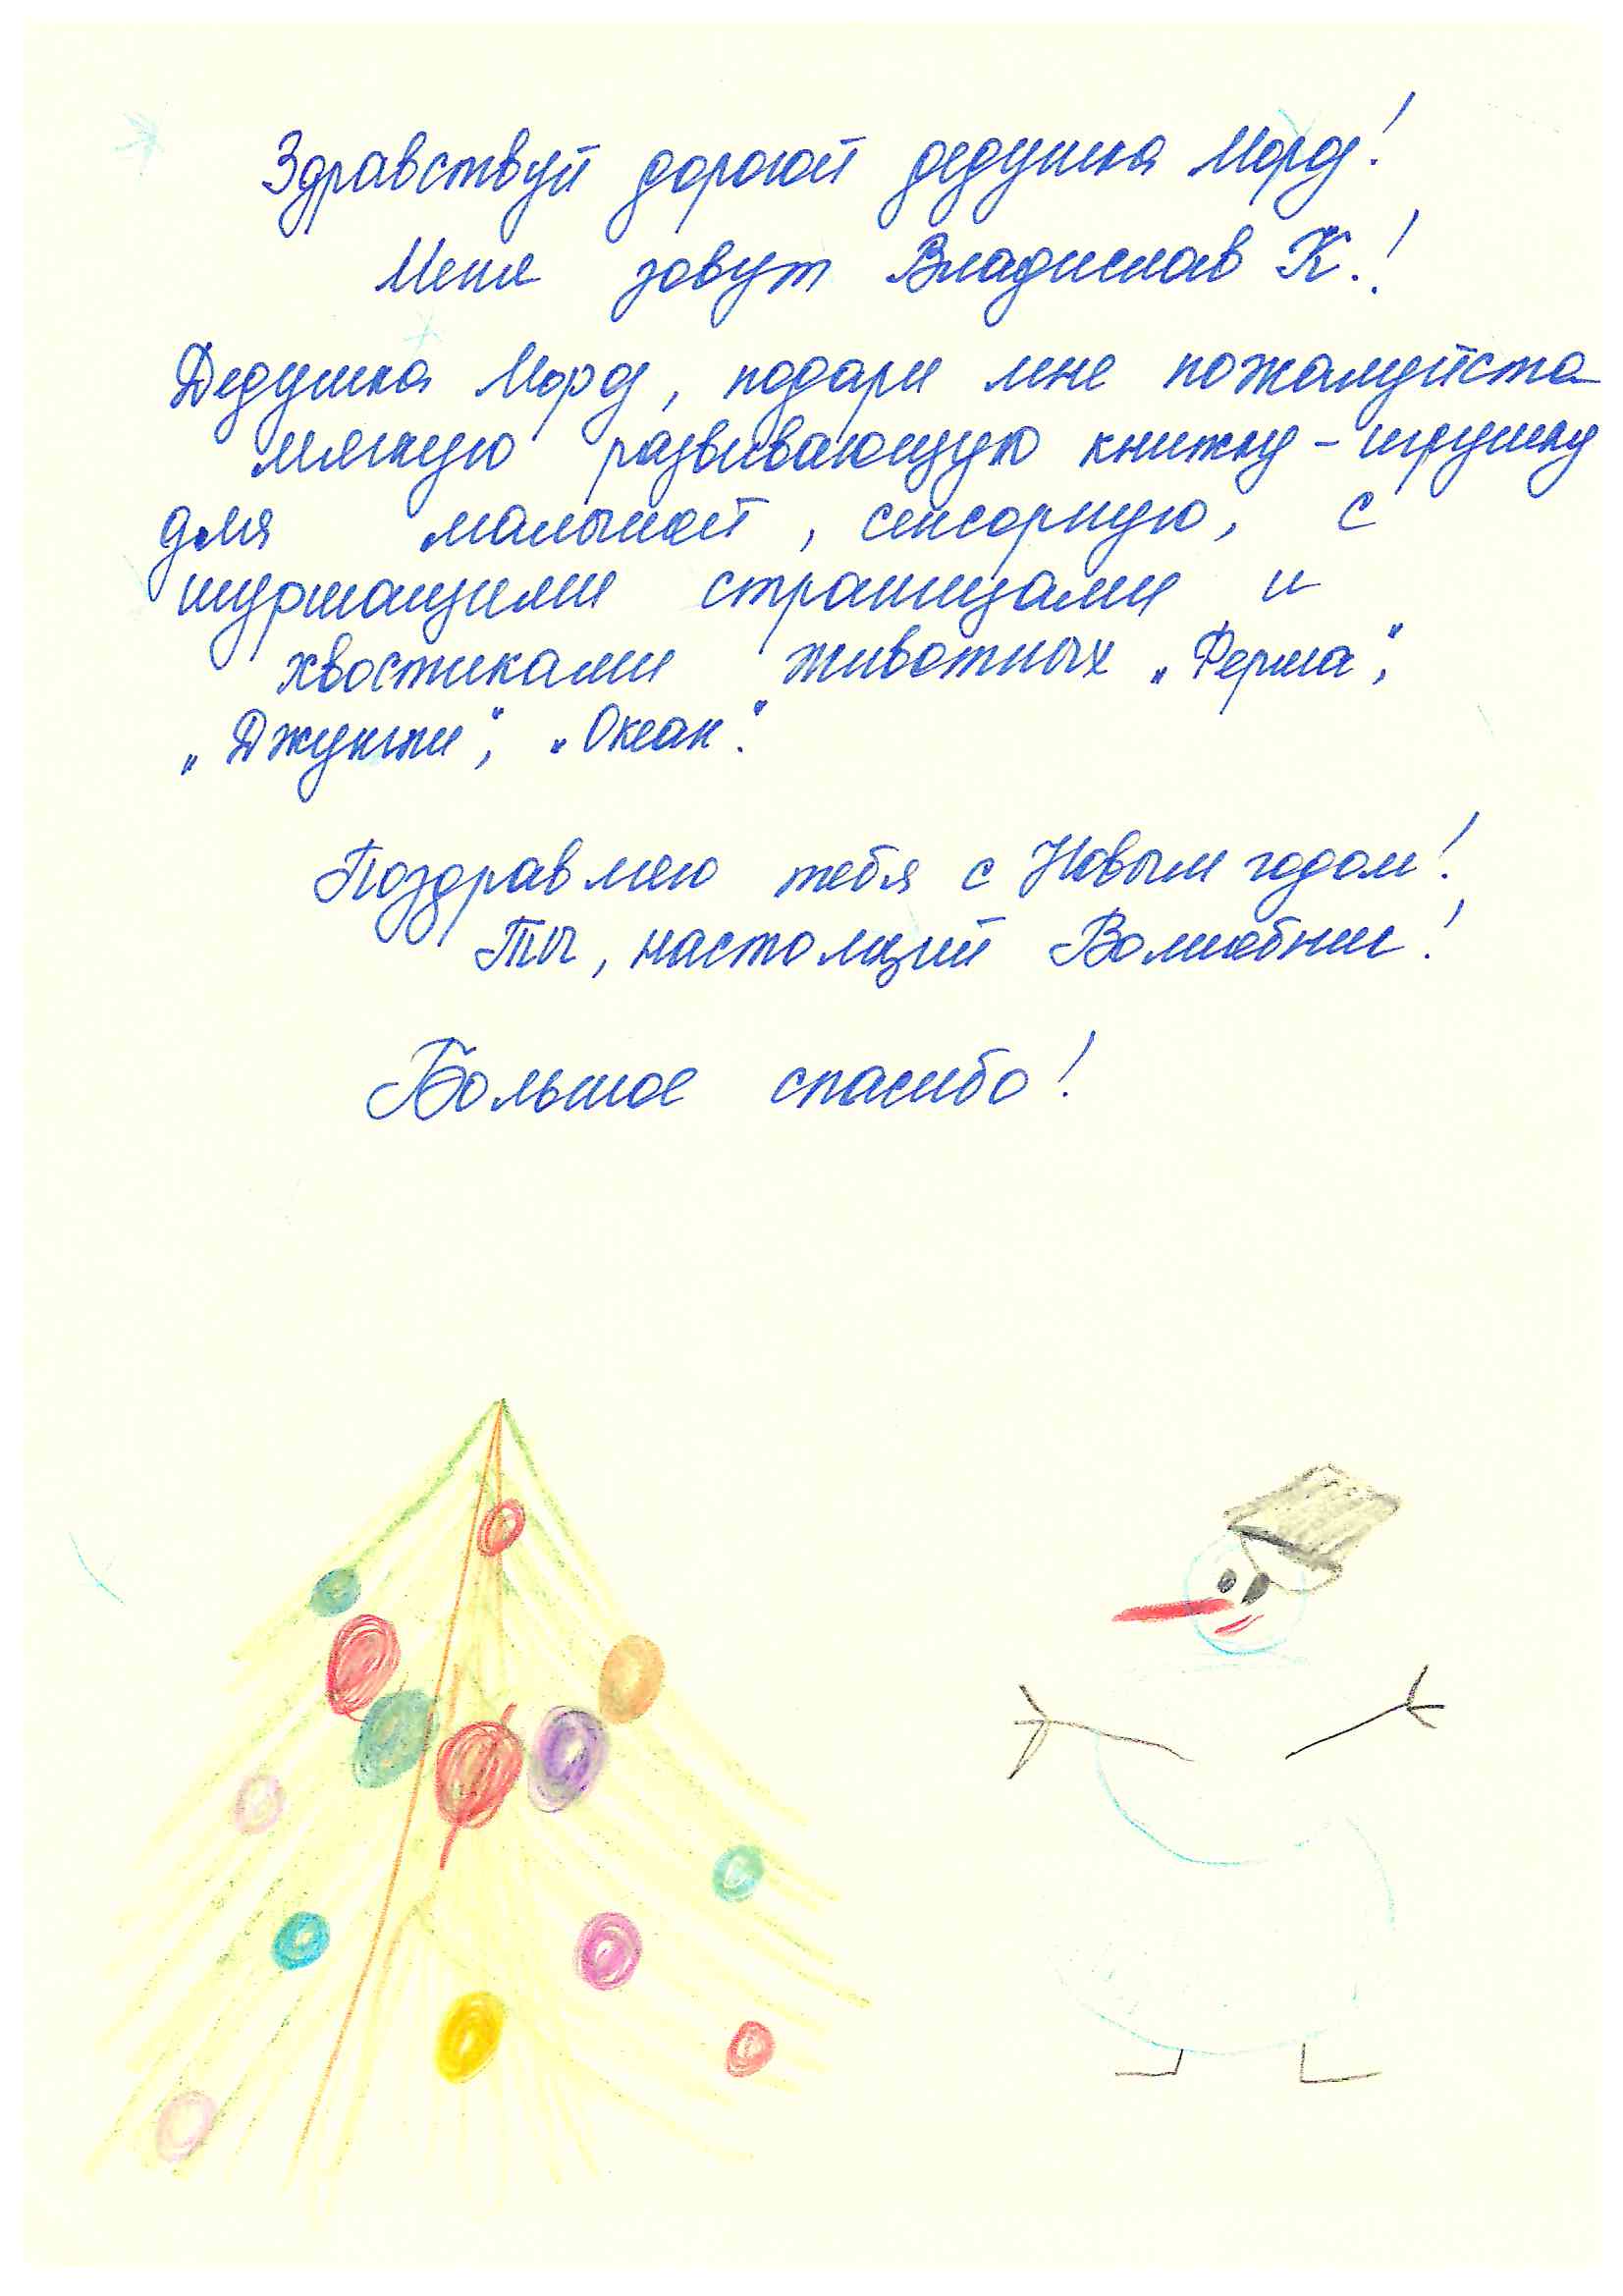 Здравствуй дорогой дедушка Мороз!
Меня зовут Владислав К.!
Дедушка Мороз, подари мне пожалуйста
мягкую развивающую книжку-игрушку
для малышей, сенсорную, с
шуршащими страницами и
хвостиками животных „Ферма“,
„Джунгли“, „Океан“.
Поздравляю тебя с Новым годом!
Ты, настоящий Волшебник!
Большое спасибо!